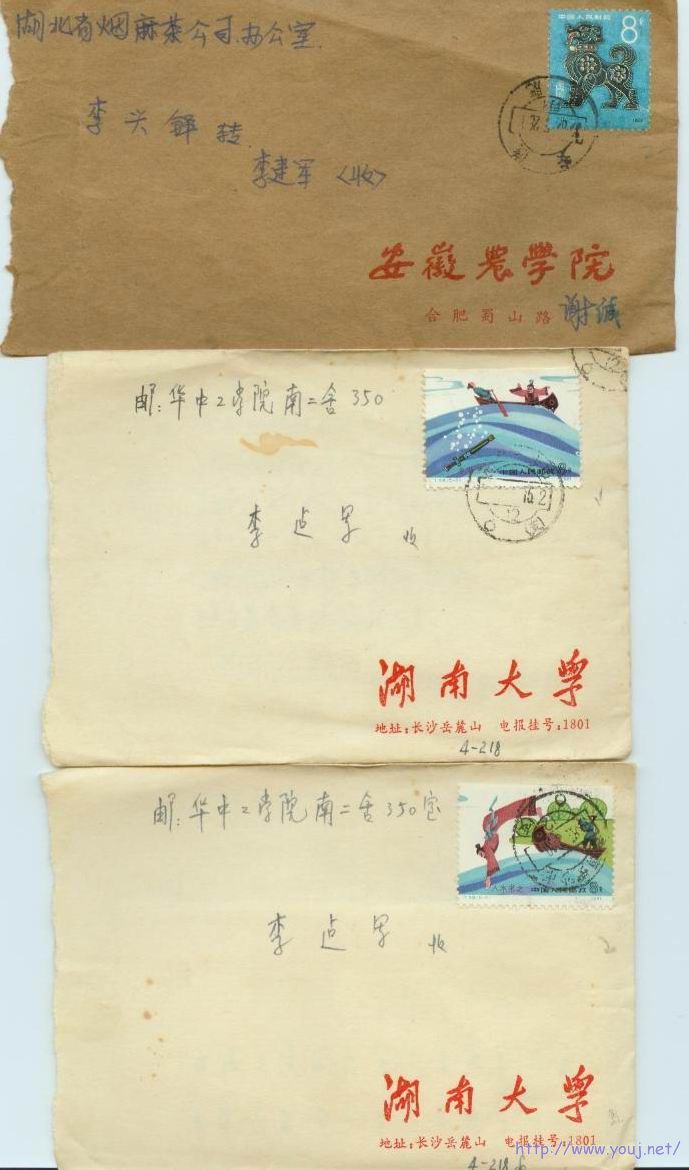 湖北省烟麻茶公司办公室
中国人民邮政
8分
李兴铎 转
李建军〈收〉
安徽農学院
合肥蜀山路 谢缄
邮:华中工学院南二舍350
中国人民邮政
李建军 收
湖南大学
地址:长沙岳麓山 电报挂号:1801
4-218
邮:华中工学院南二舍350室
中国人民邮政 8分
李建军 收
湖南大学
地址:长沙岳麓山 电报挂号:1801
4-218
http://www.youj.net/